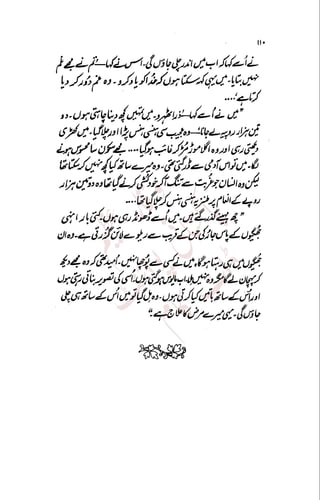 ۱۱۰
نے اُسے کہا کہ اب میں اندر چلی جاؤں گی۔ اس نے کہا — تم نے مجھے غم
نہیں بتایا۔ میں یہی کہہ سکتا ہوں کہ خدا کو یاد کرو۔ وہ غم دور کر دیا
کرتا ہے....
"میں نے اُسے کہا — ذرا ٹھہرو۔ میں تمہیں کچھ دینا چاہتی ہوں۔ دو
تین ہزار روپیہ لے جاؤ! — وہ عجیب سی ہنسی ہنس پڑا اور چلا گیا۔ میں کھڑی
دیکھتی رہی اور وہ اگلا موڑ مڑ کر غائب ہو گیا.... مجھے سکون سا محسوس ہونے
لگا۔ میں تو اس آدمی سے ڈر گئی تھی۔ وہ میرے ساتھ کیا کچھ نہیں کر سکتا تھا
لیکن وہ انسان جو غربت سے تنگ آ کر خودکشی کرنے گیا تھا وہ دو تین ہزار
روپے کے انعام پر طنزیہ ہنسی ہنس کر چلا گیا تھا....
"چھ مہینے گذر گئے ہیں۔ میں اُسے ڈھونڈ رہی ہوں۔ کئی بار انہی
جھگیوں کے پاس جا کر کی جن کے قریب سے ریلوے لائن گزرتی ہے۔ وہ ان
جھگیوں میں ہی رہتا ہو گا۔ میں نے کسی سے پوچھا نہیں۔ اُمید تھی کہ وہ مجھے دیکھ
کر پہچان لے گا مگر وہ نہیں ملا۔ اب مایوس ہو گئی ہوں۔ اسی کی تصویر بناتی رہتی ہوں
اور اُس کے ساتھ باتیں کیا کرتی ہوں۔ وہ مل گیا تو میں اُس کے ساتھ ہی چلی
جاؤں گی۔ یہی میرے مرض کا علاج ہے۔"